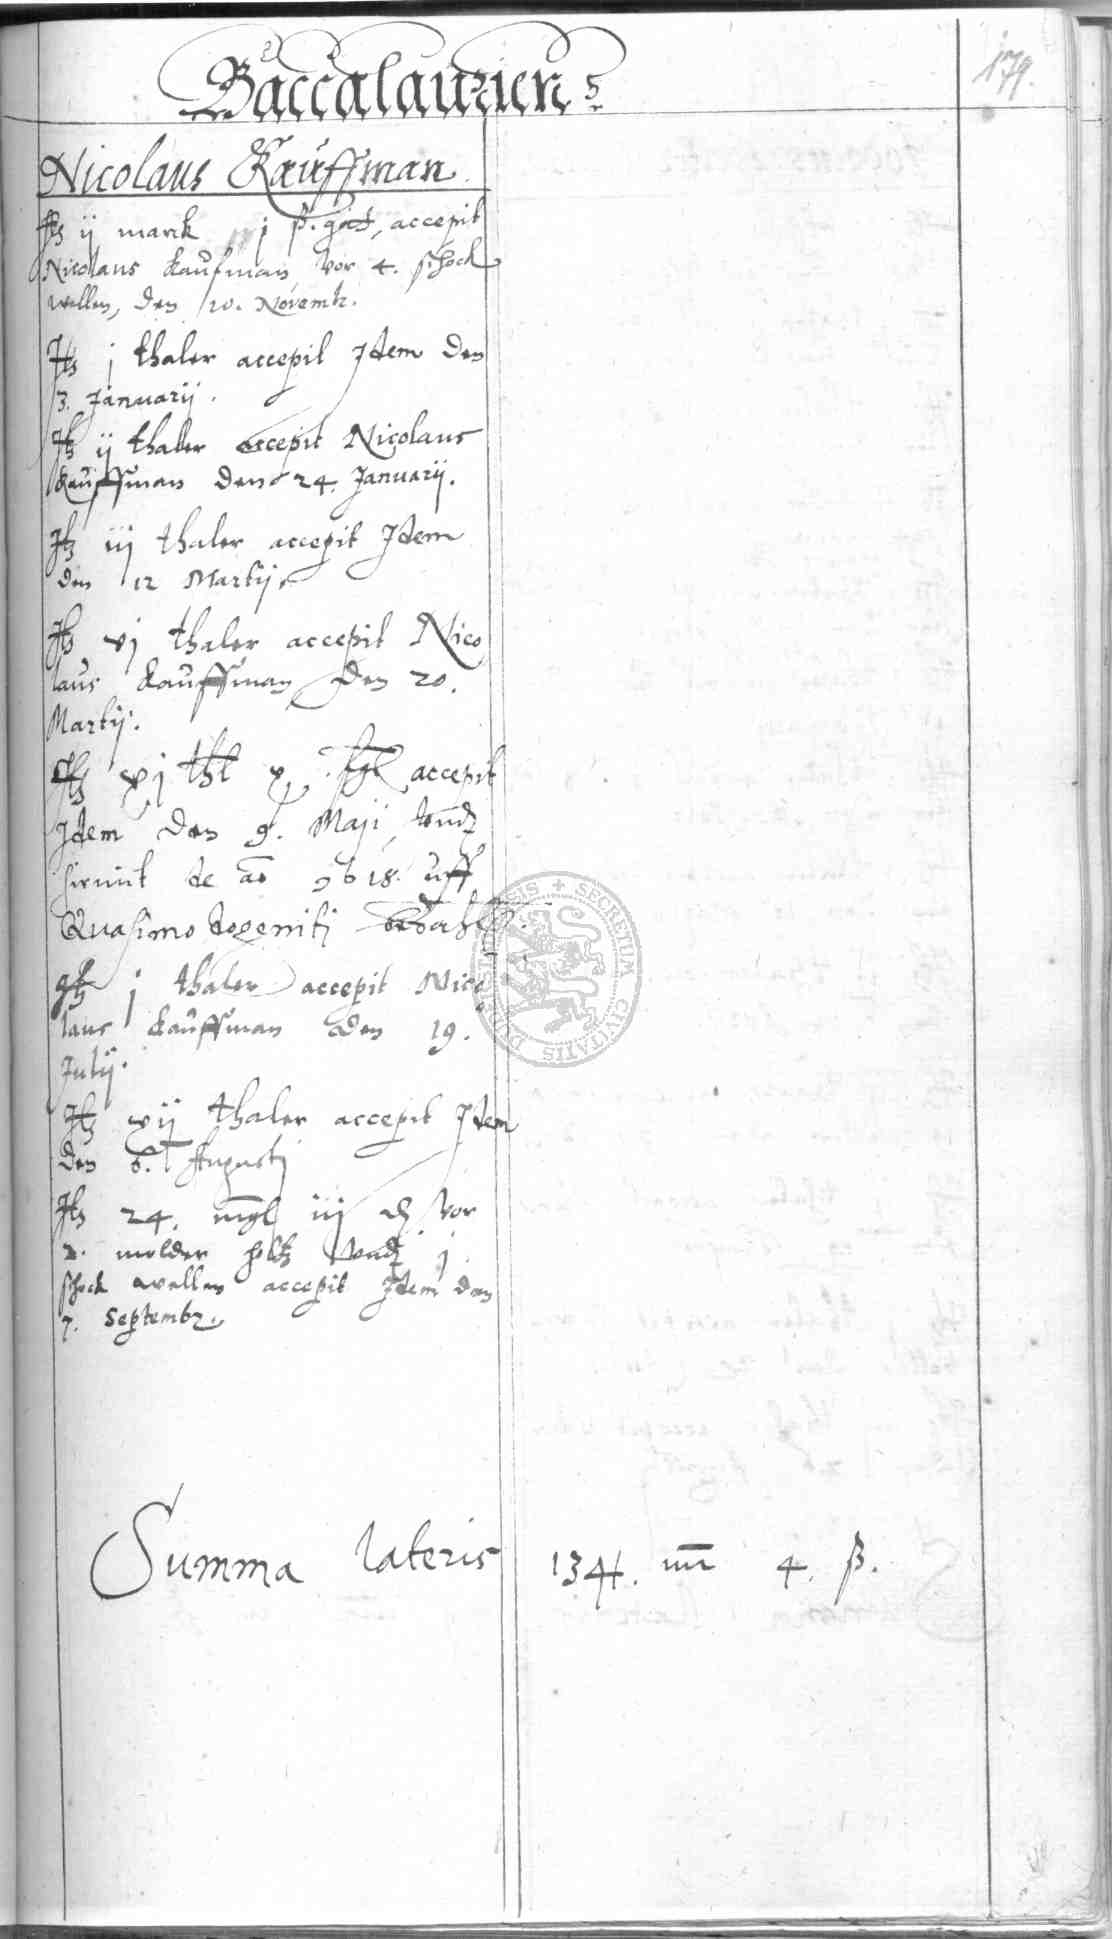 179.
Baccalaurien
Nicolaus Kauffman
Itz ij marck j ß. gött, accepit
Nicolaus Kaufman vor 4. schock
wellen, den 20. Novemb.
Itz j thaler accepit Idem den
3. Januarij.
Itz ij thaler accepit Nicolaus
Kauffman den 24. Januarij.
Itz iij thaler accepit Idem
den 12 Martij
Itz vj thaler accepit Nico
laus Kauffman den 20.
Martij.
Itz xj thl x accepit
Idem den 9. Maji
de ao 1618. uff
Quasimodogeniti
Itz j thaler accepit Nico
laus Kauffman den 19.
Julij.
Itz xij thaler accepit Idem
den 6. Augusti
Itz 24. mgl iij d vor
2. molder holtz vndt j
schock wellen accepit Idem den
7. Septemb.
Summa lateris 134. m 4. ß.
SECRETUM CIVITATIS